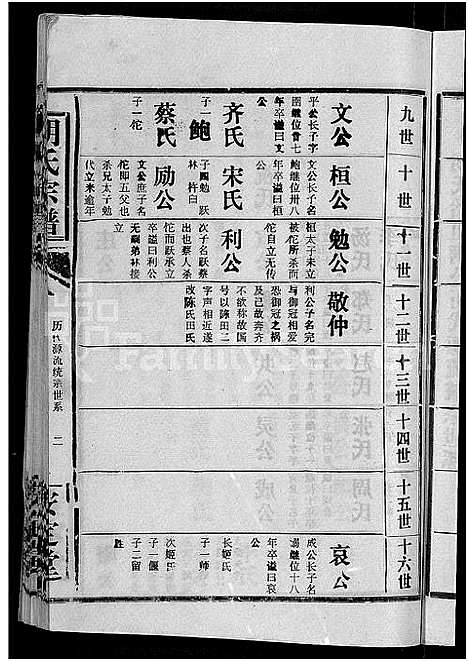 九世
文公
平公长子名
圉继位卅七
年卒谥曰文
公
齐氏
子一鲍
蔡氏
子一佗
十世
桓公
文公长子名
鲍继位卅八
年卒谥曰桓
公
宋氏
子四勉 跃
林 杵臼
励公
文公庶子名
佗即五父也
杀兄太子勉
代立来逾年
十一世
勉公
桓太子未立
被佗所杀而
佗自立无传
利公
次子名跃蔡
出也蔡人杀
佗而跃承立
卒谥曰利公
无嗣弟林接
十二世
敬仲
利公子名完
与御冠相爱
恐御冠之祸
及已故奔齐
不欲称故国
号以陈田二
字声相近遂
改陈氏田氏
十三世
十四世
十五世
十六世
哀公
成公长子名
溺继位十八
年卒谥曰哀
公
长姬氏
子一师
次姬氏
子二偃
子二留
胜
胡氏宗谱
历代源流统宗世系
二
安定堂